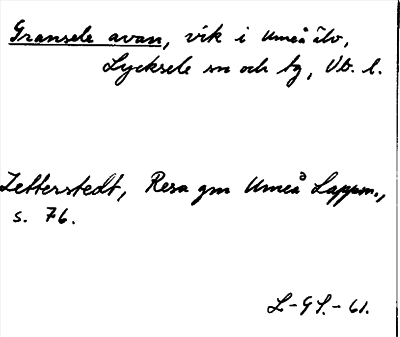 Gransele avan, vik i Umeå älv,
Lycksele sn och tg, Vb. l.
Zetterstedt, Resa gm Umeå Lappm.,
s. 76.
L-GS.-61.